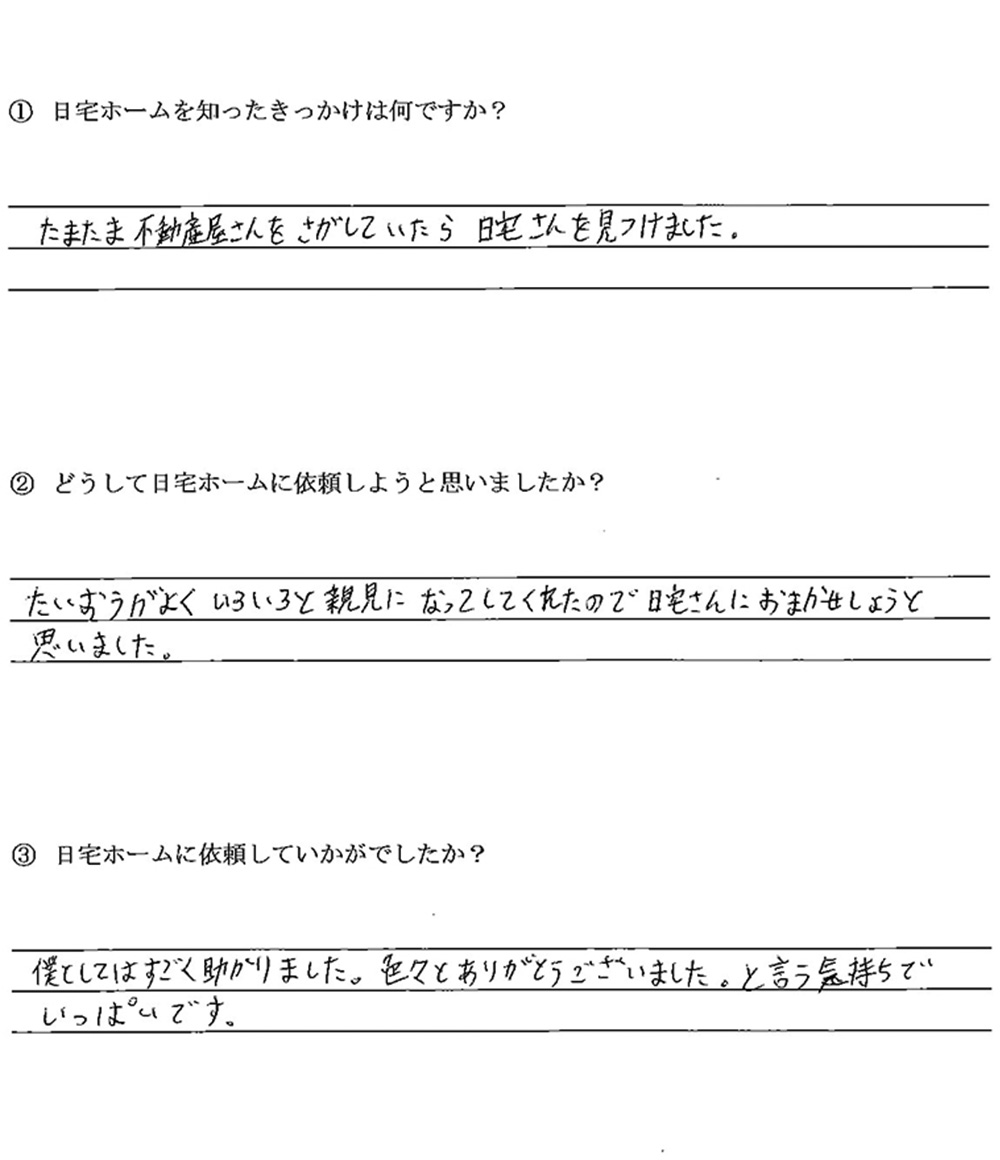 ① 日宅ホームを知ったきっかけは何ですか？
たまたま不動産屋さんをさがしていたら 日宅さんを見つけました。
② どうして日宅ホームに依頼しようと思いましたか？
たいおうがよく いろいろと親見に なってしてくれたので日宅さんにおまかせしようと
思いました。
③ 日宅ホームに依頼していかがでしたか？
僕としてはすごく助かりました。色々とありがとうございました。と言う気持ちで
いっぱいです。